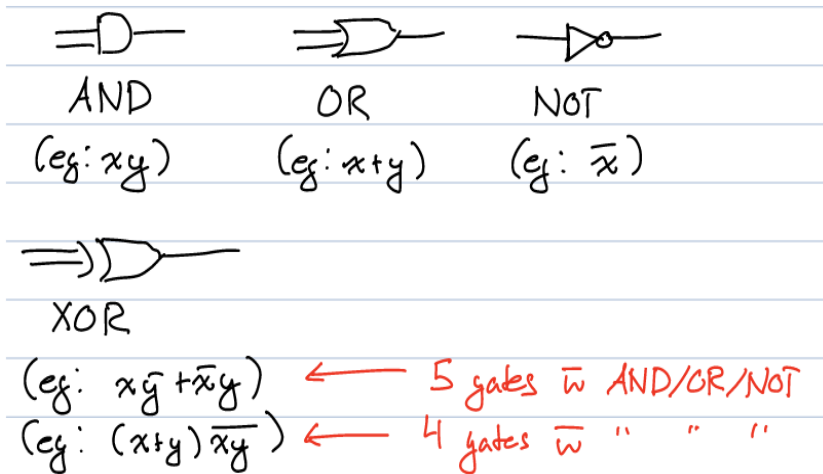 AND OR NOT
(eg: xy) (eg: x+y) (eg: x̅)
XOR
(eg: xy̅ + x̅y) ← 5 gates w̅ AND/OR/NOT
(eg: (x+y) x̅y̅) ← 4 gates w̅ " " "